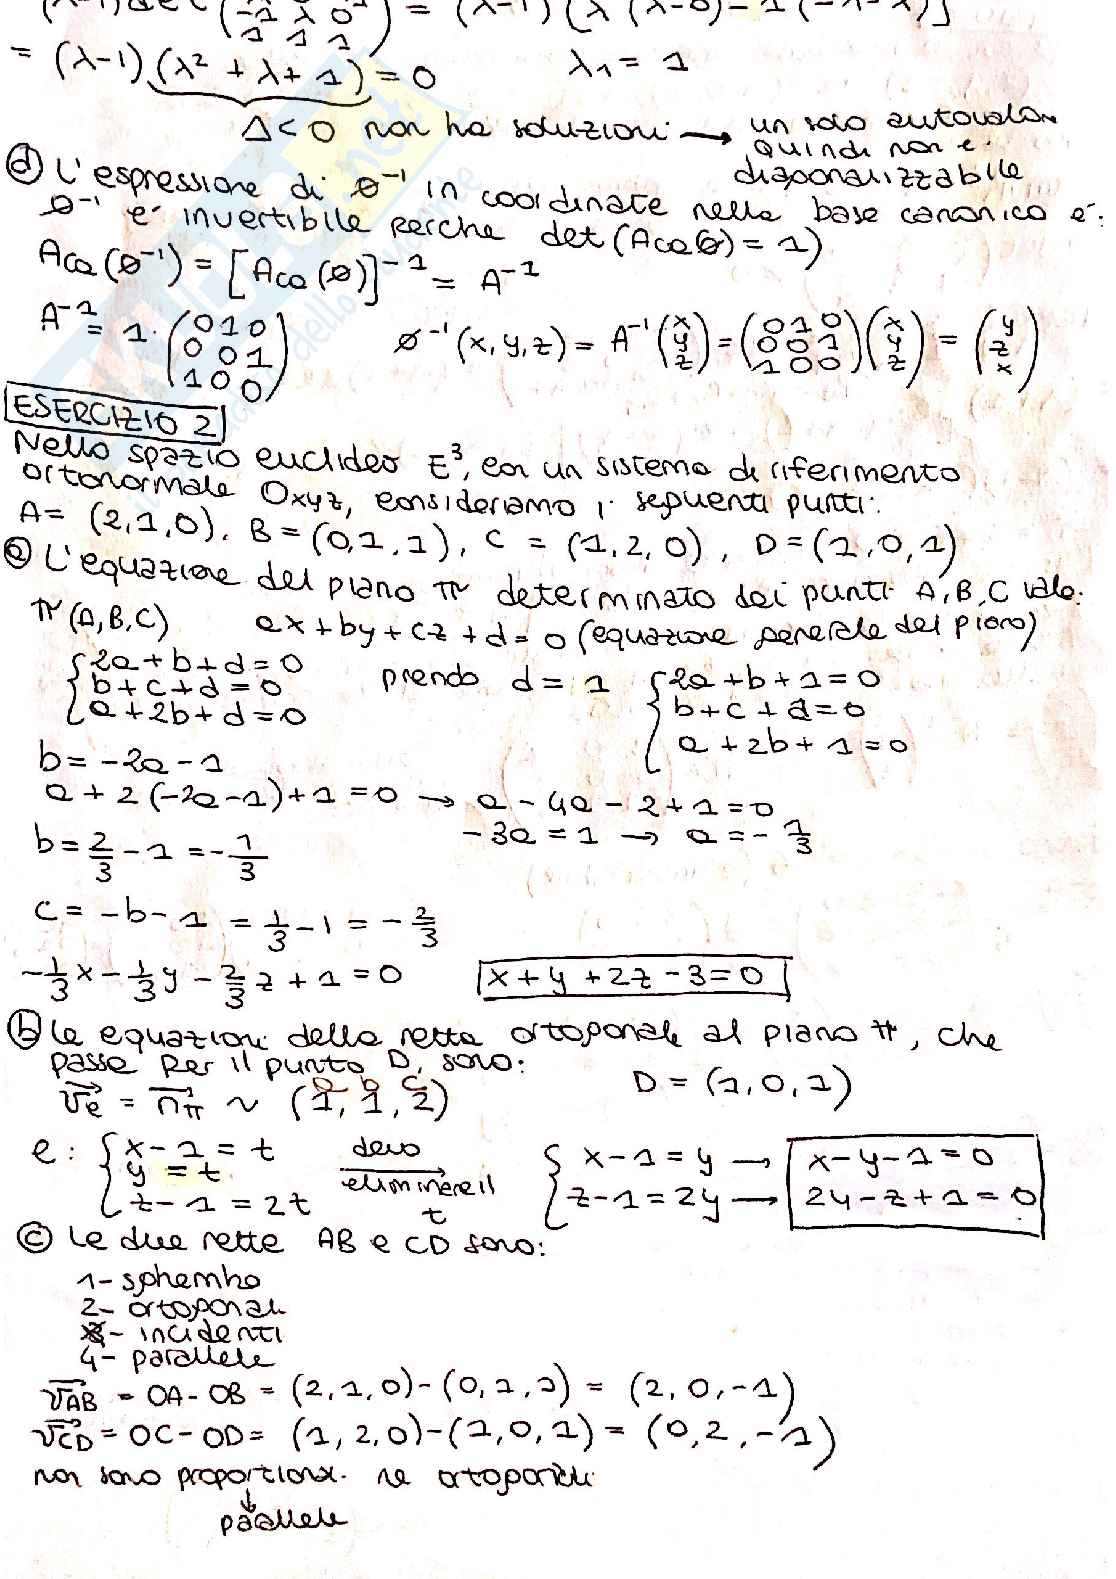 = (λ-1)(λ² + λ + 1) = 0 λ1 = 1
Δ<0 non ha soluzioni → un solo autovalore
quindi non è
diagonalizzabile
ⓓ L'espressione di ø⁻¹ in coordinate nella base canonica è:
ø⁻¹ è invertibile perche det (Aca ø) = 1)
Aca (ø⁻¹) = [Aca (ø)]⁻¹ = A⁻¹
A⁻¹ = 1 · (0 1 0 / 0 0 1 / 1 0 0) ø⁻¹ (x, y, z) = A⁻¹ (x / y / z) = (0 1 0 / 0 0 1 / 1 0 0) (x / y / z) = (y / z / x)
ESERCIZIO 2
Nello spazio euclideo E³, con un sistema di riferimento
ortonormale Oxyz, consideriamo i seguenti punti:
A = (2,1,0), B = (0,1,1), C = (1,2,0), D = (1,0,1)
ⓐ L'equazione del piano π determinato dai punti A, B, C vale:
π (A,B,C) ax + by + cz + d = 0 (equazione generale del piano)
{2a + b + d = 0 prendo d = 1 {2a + b + 1 = 0
b + c + d = 0 b + c + d = 0
a + 2b + d = 0 a + 2b + 1 = 0
b = -2a - 1
a + 2 (-2a-1) + 1 = 0 → a - 4a - 2 + 1 = 0
-3a = 1 → a = - 1/3
b = 2/3 - 1 = - 1/3
c = -b - 1 = 1/3 - 1 = - 2/3
-1/3 x - 1/3 y - 2/3 z + 1 = 0 x + y + 2z - 3 = 0
ⓑ Le equazioni della retta ortogonale al piano π, che
passa per il punto D, sono: D = (1,0,1)
a b c
ve = nπ ~ (1, 1, 2)
e: {x - 1 = t devo { x - 1 = y → x - y - 1 = 0
y = t eliminare il
z - 1 = 2t t z - 1 = 2y → 2y - z + 1 = 0
ⓒ Le due rette AB e CD sono:
1- sghembe
2- ortogonali
3- incidenti
4- parallele
vAB = OA - OB = (2,1,0) - (0,1,1) = (2, 0, -1)
vCD = OC - OD = (1, 2, 0) - (1,0,1) = (0, 2, -1)
non sono proporzionali ne ortogonali
↓
parallele